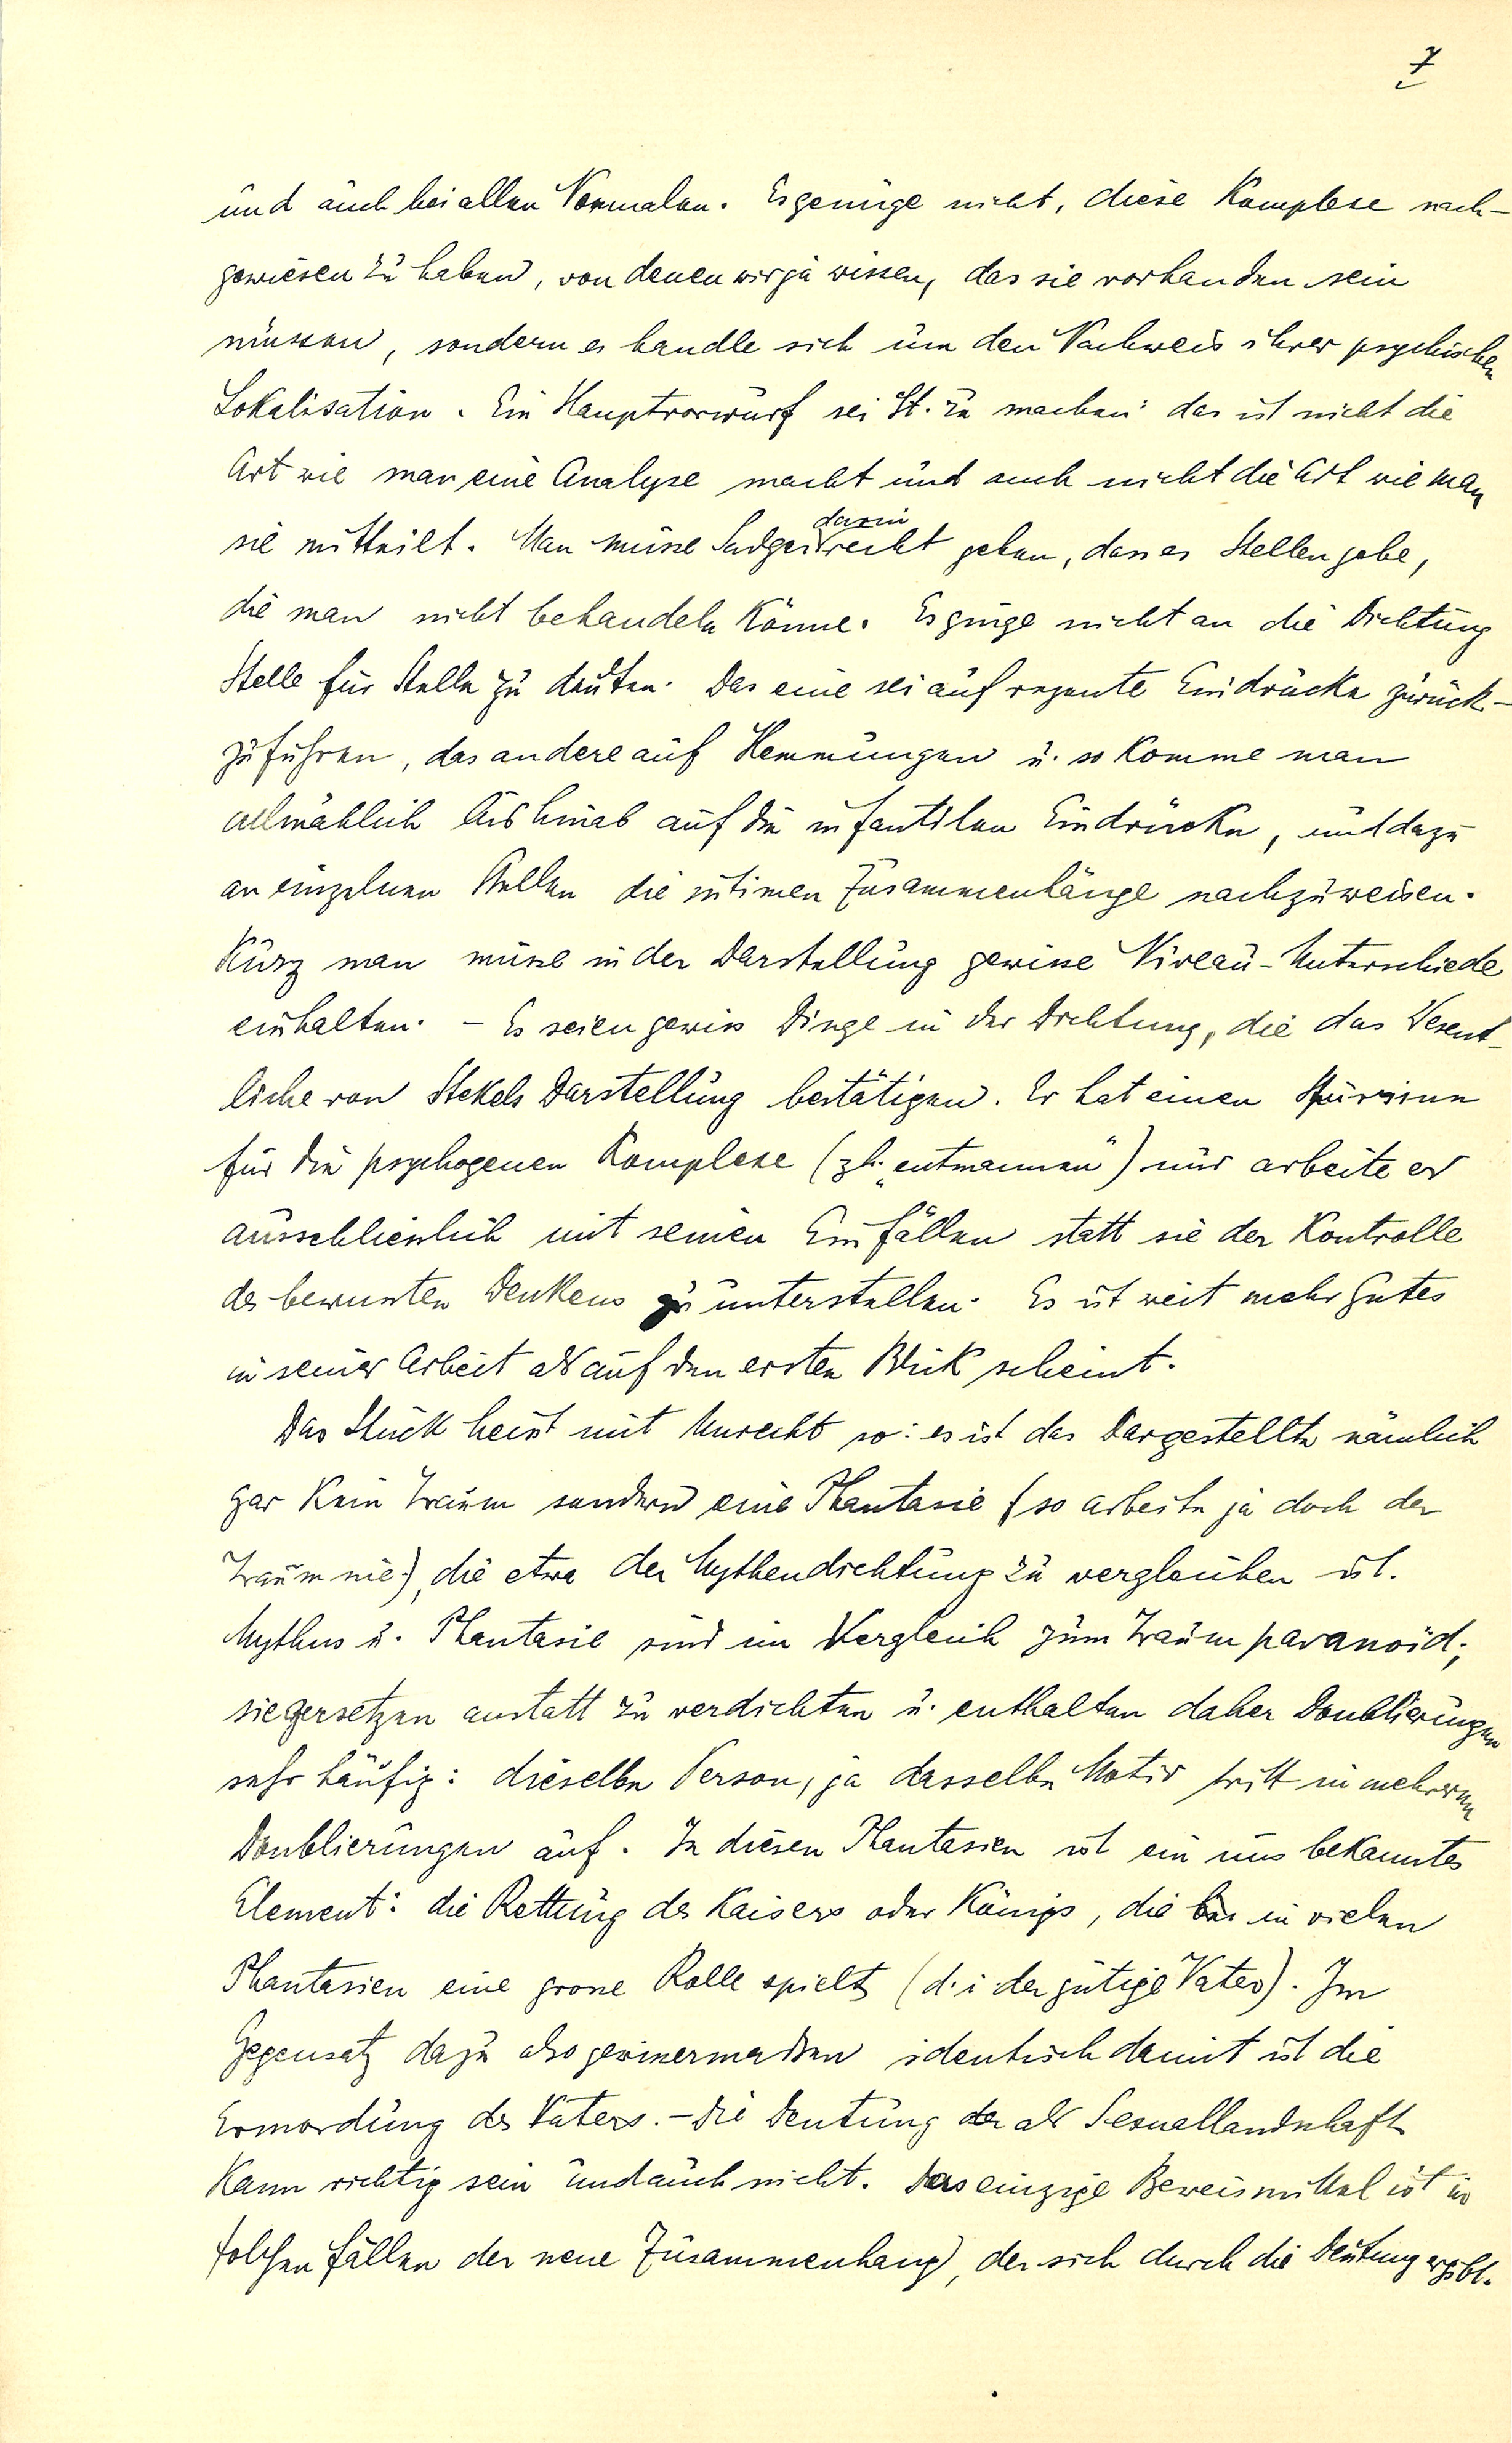 7
und auch bei allen Normalen. Es genüge nicht, diese Komplexe nach-
gewiesen zu haben, von denen wir ja wissen, das sie vorhanden sein
müssen, sondern es handle sich um den Nachweis ihrer psychischen
Lokalisation. Ein Hauptvorwurf sei St. zu machen: das ist nicht die
Art wie man eine Analyse macht und auch nicht die Art wie man
sie mitteilt. Man müsse Sadger darin recht geben, dass es Stellen gebe,
die man nicht behandeln könne. Es ginge nicht an die Dichtung
Stelle für Stelle zu deuten. Das eine sei auf rezente Eindrücke zurück-
zuführen, das andere auf Hemmungen u. so komme man
allmählich bis hinab auf die infantilen Eindrücke, und dazu
an einzelnen Stellen die intimen Zusammenhänge nachzuweisen.
Kurz man müsse in der Darstellung gewisse Niveau-Unterschiede
einhalten. – Es seien gewiss Dinge in der Dichtung, die das Wesent-
liche von Stekels Darstellung bestätigen. Er hat einen Spürsinn
für die psychogenen Komplexe (zb. „entmannen") nur arbeite er
ausschliesslich mit seinen Einfällen statt sie der Kontrolle
des bewussten Denkens zu unterstellen. Es ist weit mehr Gutes
in seiner Arbeit als auf den ersten Blick scheint.
Das Stück heisst mit Unrecht so: es ist das Dargestellte nämlich
gar kein Traum sondern eine Phantasie (so arbeite ja doch der
Traum nie), die etwa der Mythendichtung zu vergleichen ist.
Mythus u. Phantasie sind im Vergleich zum Traum paranoid;
sie zersetzen anstatt zu verdichten u. enthalten daher Doublierungen
sehr häufig: dieselbe Person, ja dasselbe Motiv tritt in mehreren
Doublierungen auf. In diesen Phantasien ist ein uns bekanntes
Element: die Rettung des Kaisers oder Königs, die in vielen
Phantasien eine grosse Rolle spielt (d. i der gütige Vater). Im
Gegensatz dazu also gewissermassen identisch damit ist die
Ermordung des Vaters. – Die Deutung als Sexuallandschaft
kann richtig sein und auch nicht. Das einzige Beweismittel ist in
solchen Fällen der neue Zusammenhang, der sich durch die Deutung ergibt.